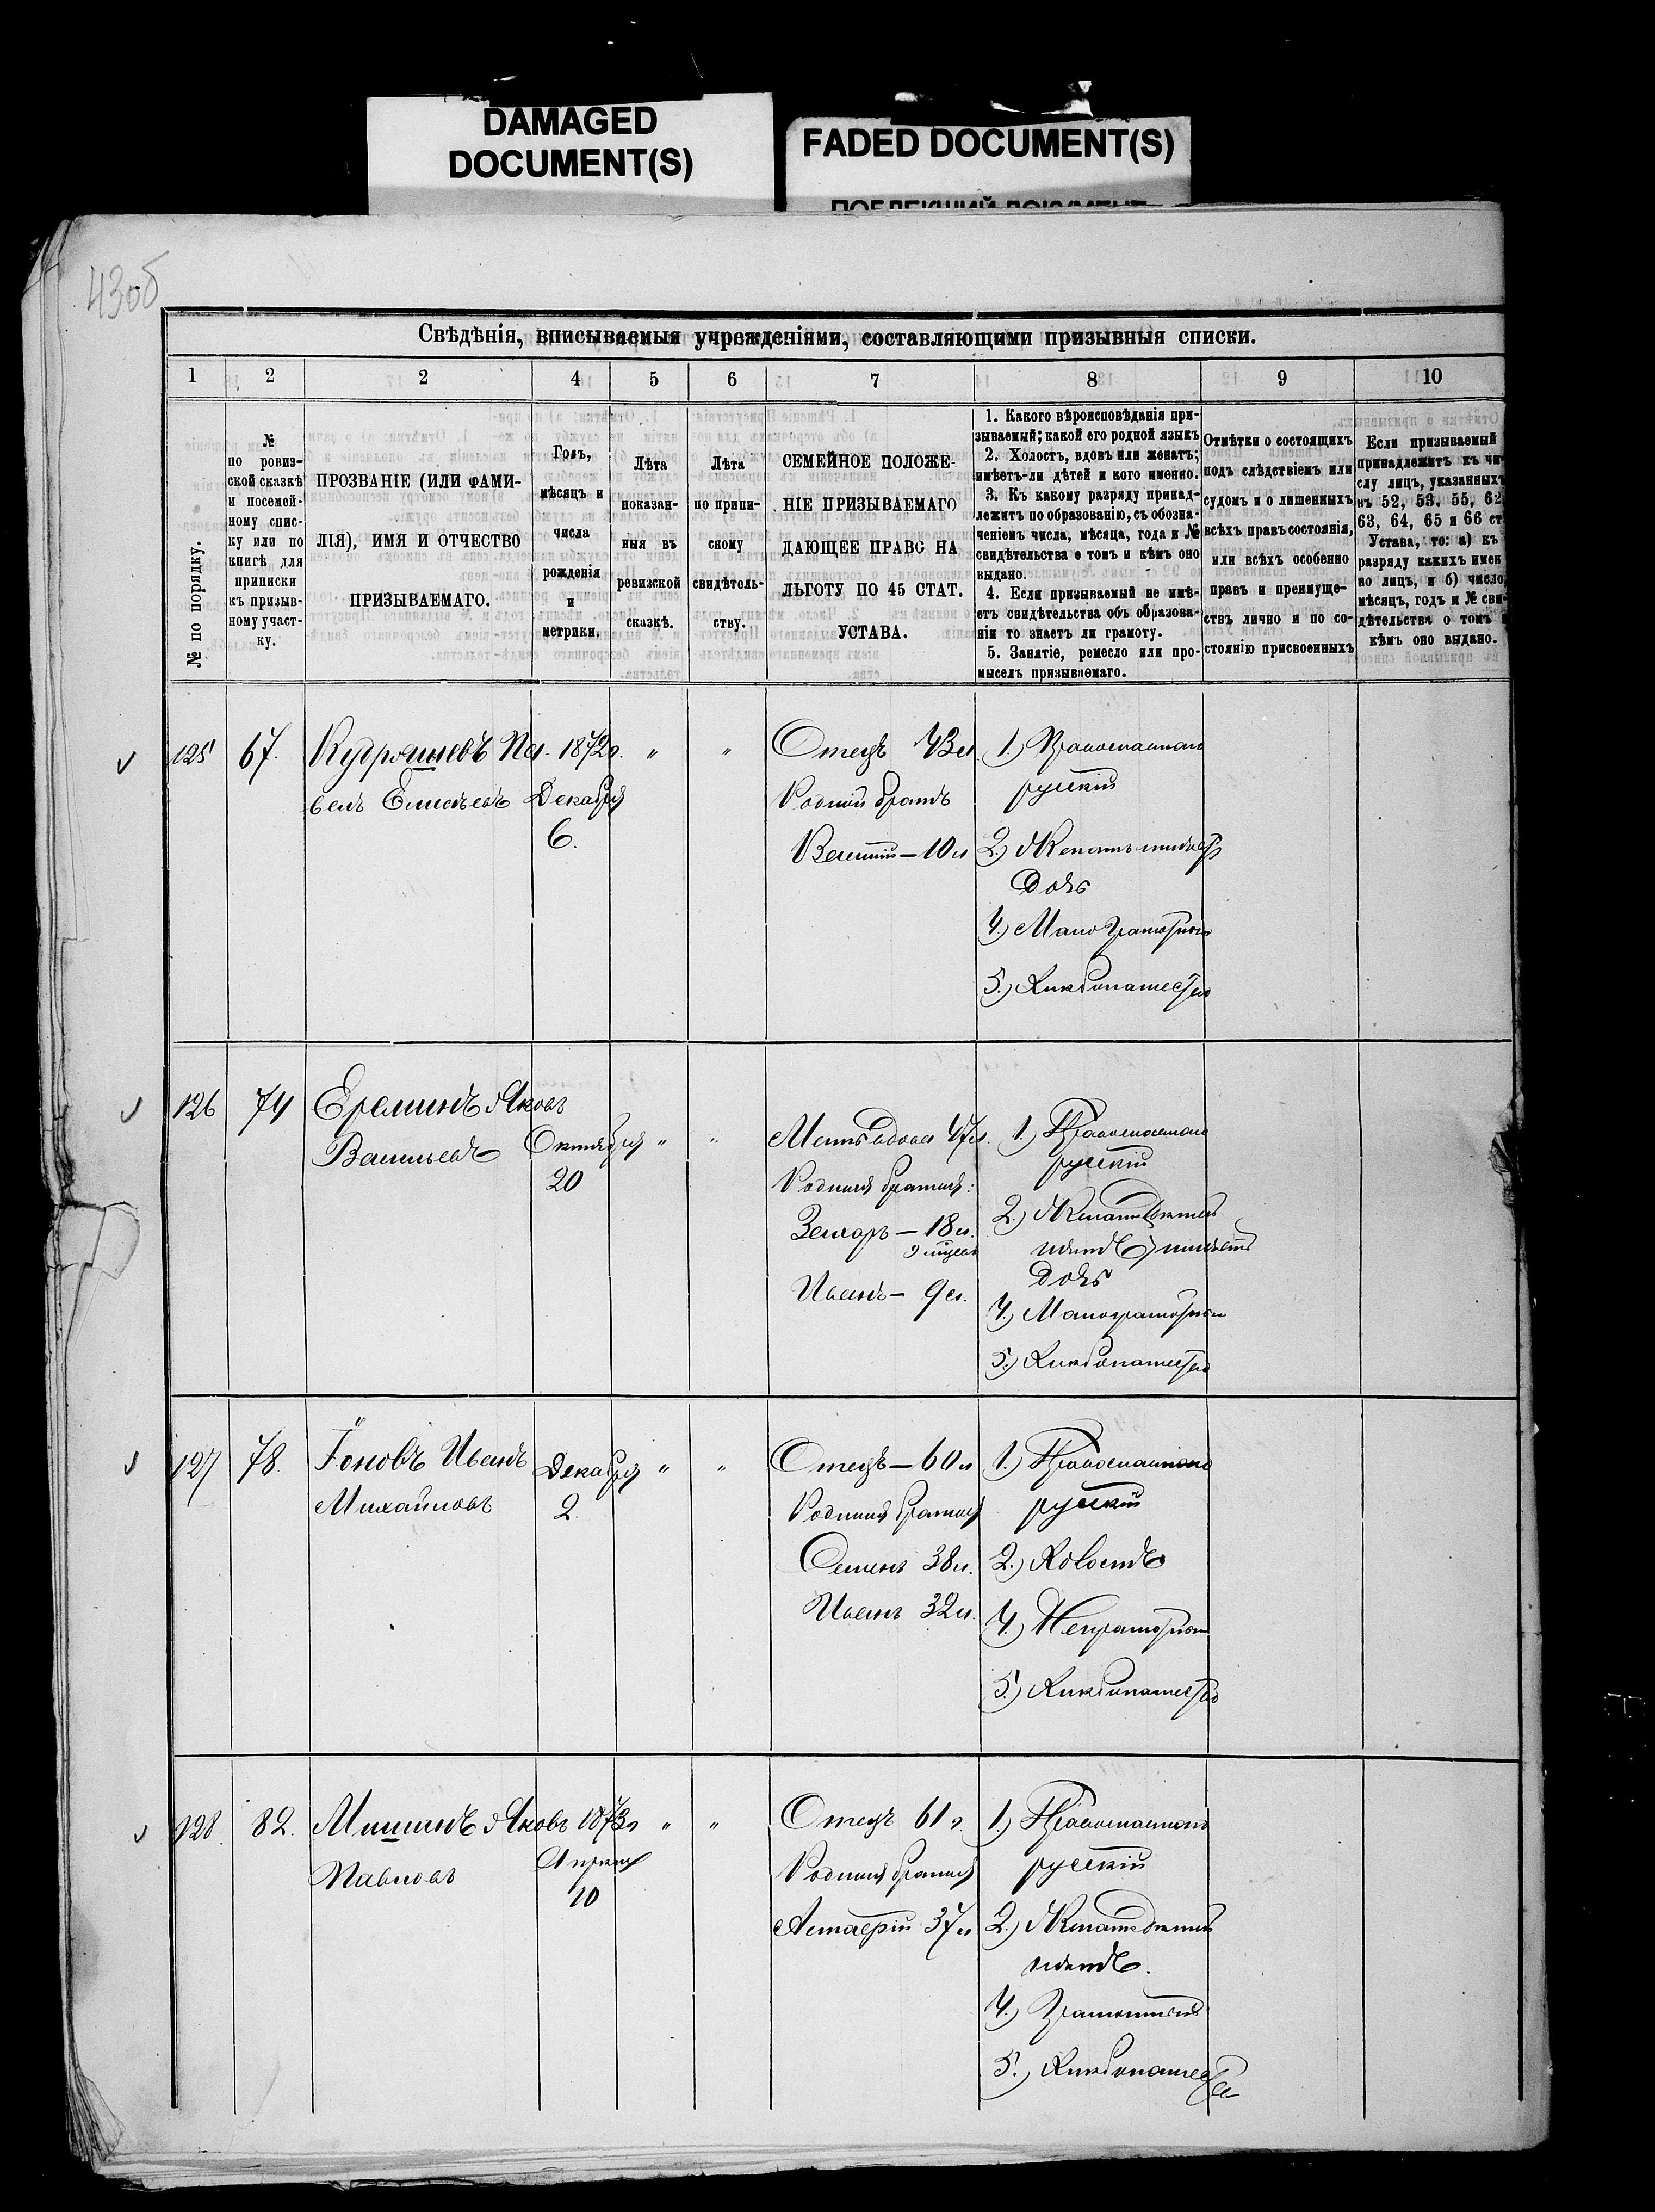 DAMAGED
DOCUMENT(S)
FADED DOCUMENT(S)
430б
Свѣдѣнія, вписываемыя учрежденіями, составляющими призывныя списки.
1 2 2 4 5 6 7 8 9 10
№ по порядку.
№
по ровиз-
ской сказкѣ
и посемей-
ному спис-
ку или по
книгѣ для
приписки
къ призыв-
ному участ-
ку.
ПРОЗВАНІЕ (ИЛИ ФАМИ-
ЛІЯ), ИМЯ И ОТЧЕСТВО
ПРИЗЫВАЕМАГО.
Годъ,
мѣсяцъ и
числа
рожденія
и
метрики.
Лѣта
показан-
ныя въ
ревизской
сказкѣ.
Лѣта
по припи-
сному
свидѣтель-
ству.
СЕМЕЙНОЕ ПОЛОЖЕ-
НІЕ ПРИЗЫВАЕМАГО
ДАЮЩЕЕ ПРАВО НА
ЛЬГОТУ ПО 45 СТАТ.
УСТАВА.
1. Какого вѣроисповѣданія при-
зываемый; какой его родной языкъ
2. Холостъ, вдовъ или женатъ;
имѣетъ-ли дѣтей и кого именно.
3. Къ какому разряду принад-
лежитъ по образованію, съ обозна-
ченіемъ числа, мѣсяца, года и №
свидѣтельства о томъ и кѣмъ оно
выдано.
4. Если призываемый не имѣ-
етъ свидѣтельства объ образова-
ніи то знаетъ ли грамоту.
5. Занятіе, ремесло или про-
мыселъ призываемаго.
Отмѣтки о состоящихъ
подъ слѣдствіемъ или
судомъ и о лишенныхъ
всѣхъ правъ состоянія,
или всѣхъ особенно
правъ и преимуще-
ствъ лично и по со-
стоянію присвоенныхъ
Если призываемый
принадлежитъ къ чи-
слу лицъ, указанныхъ
въ 52, 53, 55, 62
63, 64, 65 и 66 ст
Устава, то: а) къ
разряду какихъ имен
но лицъ, и б) число,
мѣсяцъ, годъ и № сви-
дѣтельства о томъ и
кѣмъ оно выдано.
125 67. Кудряшевъ Па- 1872г. " " Отецъ 43л 1.) Православнаго
велъ Елисѣевъ Декабря Родной братъ русскій
6. 10л 2.) Женатъ имѣетъ
Дочь
4.) Малограмотный
5.) Хлѣбопашество
126 74 Ереминъ Яковъ
Васильевъ Октября " " Мать вдова 47л. 1.) Православнаго
20 Родныя братья: русскій
Захаръ — 18л. 2.) Женатъ дѣтей
нѣтъ имѣетъ
Дочь
Иванъ — 9л. 4.) Малограмотный
5.) Хлѣбопашество
127 78. Іоновъ Иванъ Декабря " " Отецъ — 60л 1.) Православнаго
Михайловъ 2. Родныя братья русскій
Семенъ 38л. 2.) Холостъ
Иванъ 32л. 4.) Неграмотный
5.) Хлѣбопашество
128. 82. Мишинъ Яковъ 1873г " " Отецъ 61г. 1.) Православнаго
Павловъ Апрѣля Родныя братья русскій
10 Астерій 37л 2.) Женатъ дѣтей
нѣтъ.
4.) Грамотный
5.) Хлѣбопашество